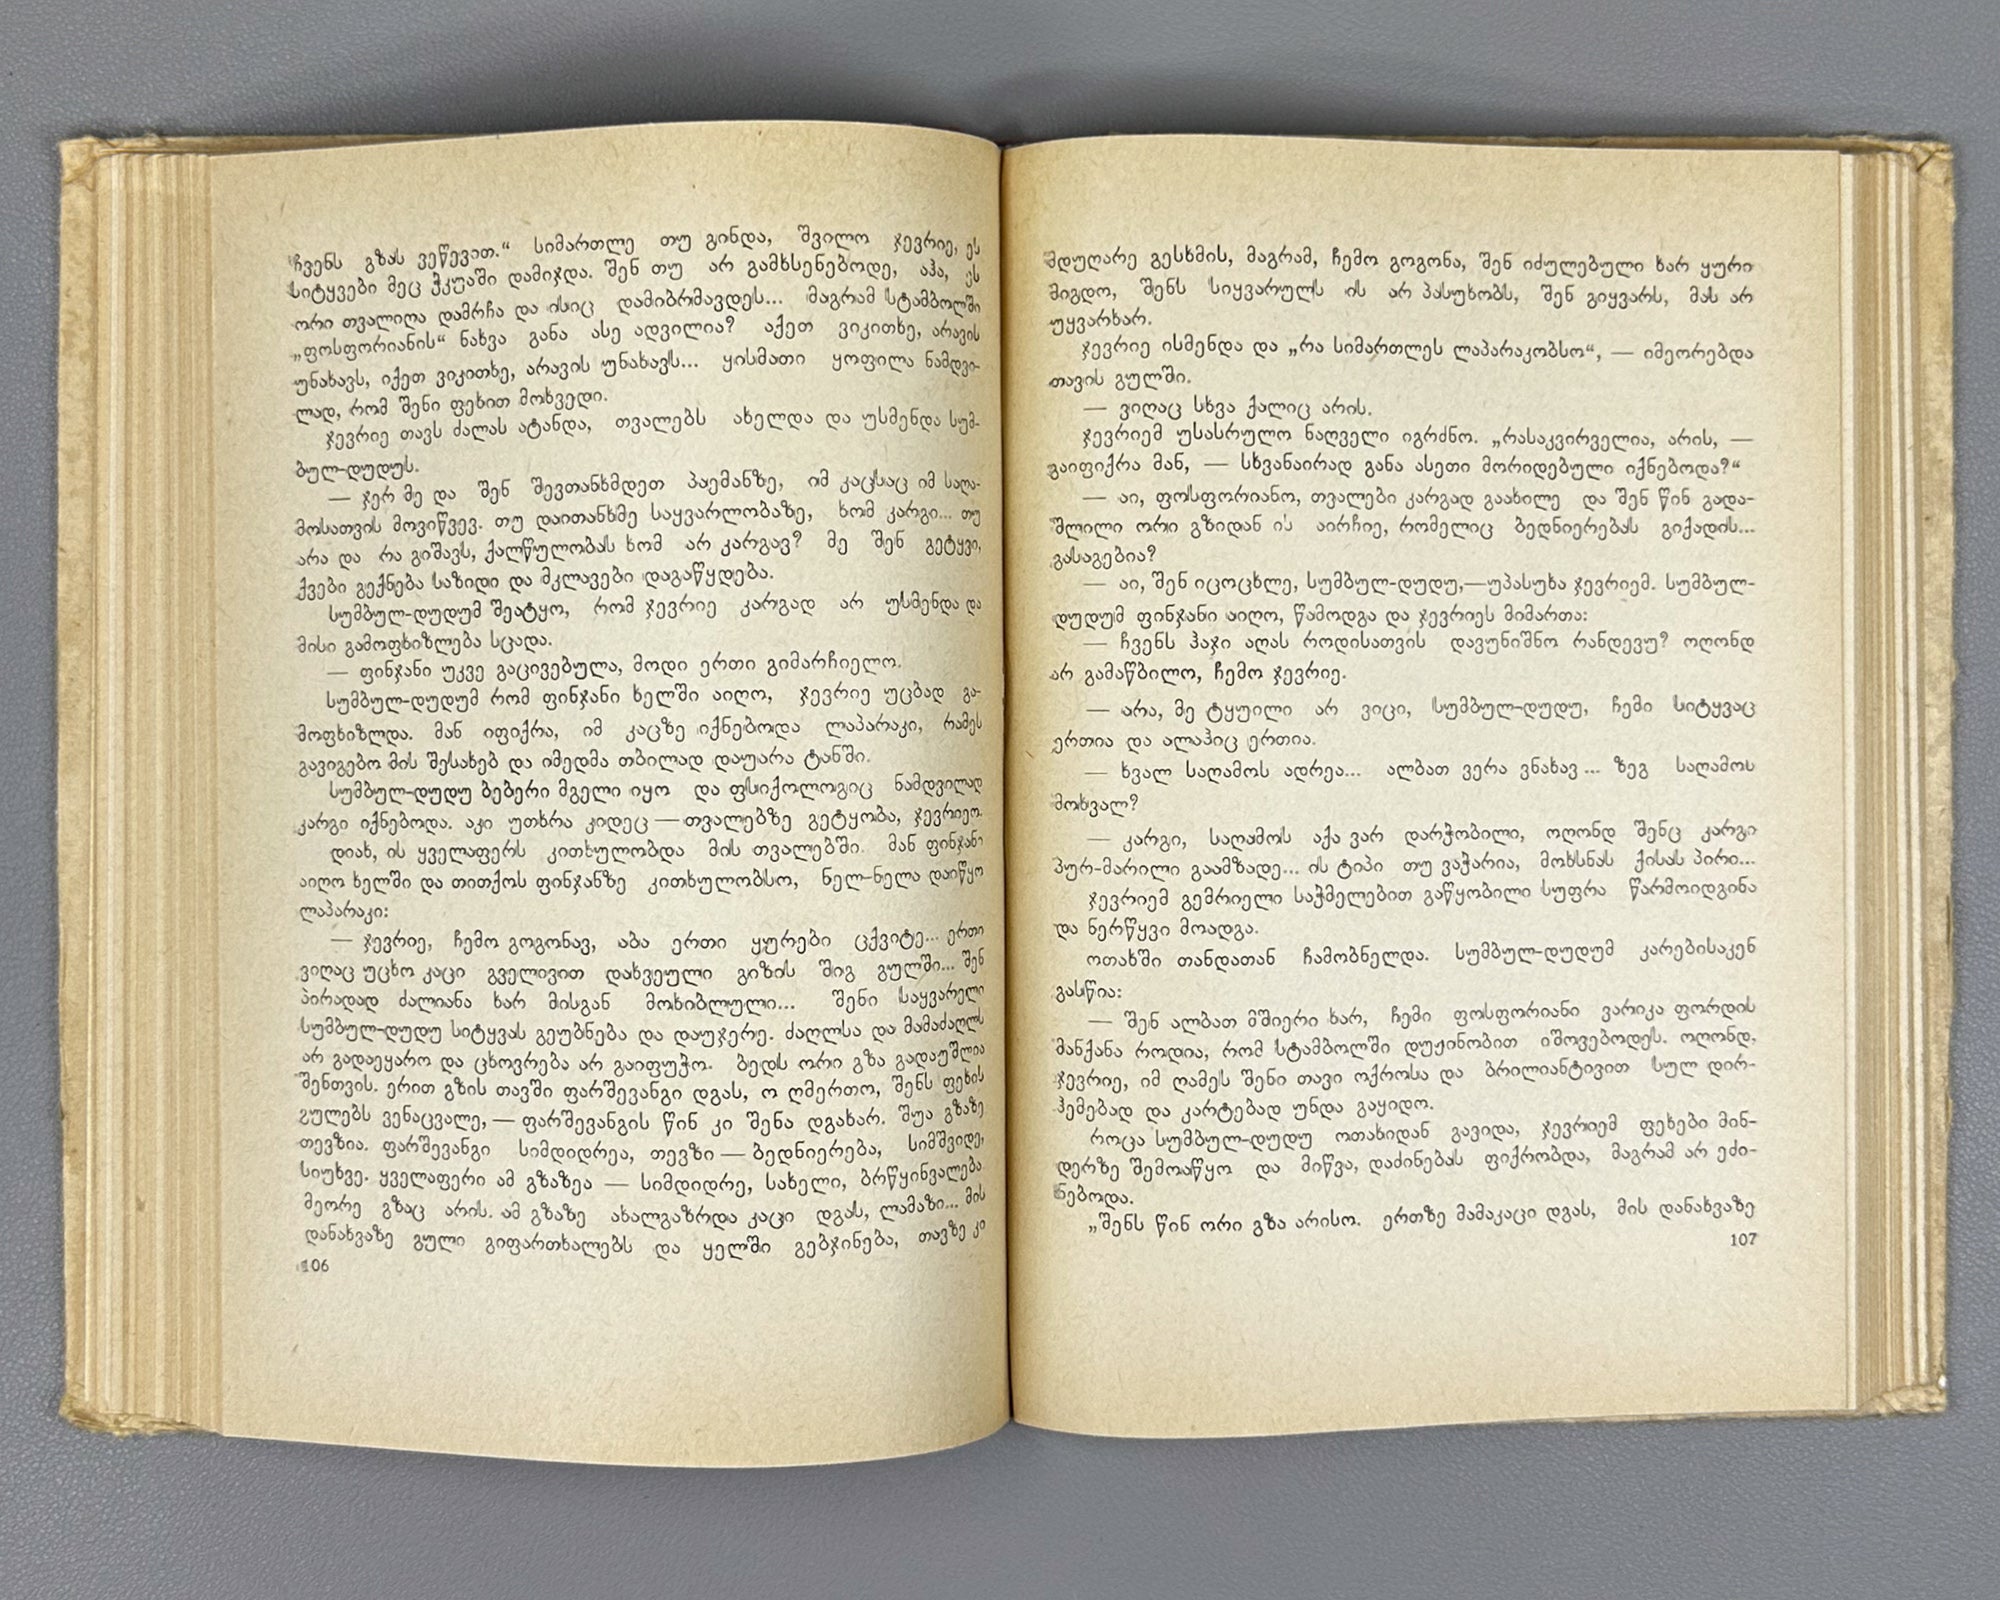 ჩვენს გზას ვეწევით.“ სიმართლე თუ გინდა, შვილო ჯევრიე, ეს
სიტყვები მეც ჭკუაში დამიჯდა. შენ თუ არ გამხსენებოდე, აჰა, ეს
ორი თვალიღა დამრჩა და ისიც დამიბრმავდეს... მაგრამ სტამბოლში
„ფოსფორიანის“ ნახვა განა ასე ადვილია? აქეთ ვიკითხე, არავის
უნახავს, იქეთ ვიკითხე, არავის უნახავს... ყისმათი ყოფილა ნამდვი-
ლად, რომ შენი ფეხით მოხვედი.
ჯევრიე თავს ძალას ატანდა, თვალებს ახელდა და უსმენდა სუმ-
ბულ-დუდუს.
— ჯერ მე და შენ შევთანხმდეთ პაემანზე, იმ კაცსაც იმ საღა-
მოსათვის მოვიწვევ. თუ დაითანხმე საყვარლობაზე, ხომ კარგი... თუ
არა და რა გიშავს, ქალწულობას ხომ არ კარგავ? მე შენ გეტყვი,
ქვები გექნება საზიდი და მკლავები დაგაწყდება.
სუმბულ-დუდუმ შეატყო, რომ ჯევრიე კარგად არ უსმენდა და
მისი გამოფხიზლება სცადა.
— ფინჯანი უკვე გაცივებულა, მოდი ერთი გიმარჩიელო.
სუმბულ-დუდუმ რომ ფინჯანი ხელში აიღო, ჯევრიე უცბად გა-
მოფხიზლდა. მან იფიქრა, იმ კაცზე იქნებოდა ლაპარაკი, რამეს
გავიგებო მის შესახებ და იმედმა თბილად დაუარა ტანში.
სუმბულ-დუდუ ბებერი მგელი იყო და ფსიქოლოგიც ნამდვილად
კარგი იქნებოდა. აკი უთხრა კიდეც — თვალებზე გეტყობა, ჯევრიეო.
დიახ, ის ყველაფერს კითხულობდა მის თვალებში. მან ფინჯანი
აიღო ხელში და თითქოს ფინჯანზე კითხულობსო, ნელ-ნელა დაიწყო
ლაპარაკი:
— ჯევრიე, ჩემო გოგონავ, აბა ერთი ყურები ცქვიტე... ერთი
ვიღაც უცხო კაცი გველივით დახვეული გიზის შიგ გულში... შენ
პირადად ძალიანა ხარ მისგან მოხიბლული... შენი საყვარელი
სუმბულ-დუდუ სიტყვას გეუბნება და დაუჯერე. ძაღლსა და მამაძაღლს
არ გადაეყარო და ცხოვრება არ გაიფუჭო. ბედს ორი გზა გადაუშლია
შენთვის. ერით გზის თავში ფარშევანგი დგას, ო ღმერთო, შენს ფეხის
გულებს ვენაცვალე, — ფარშევანგის წინ კი შენა დგახარ. შუა გზაზე
თევზია. ფარშევანგი სიმდიდრეა, თევზი — ბედნიერება, სიმშვიდე,
სიუხვე. ყველაფერი ამ გზაზეა — სიმდიდრე, სახელი, ბრწყინვალება
მეორე გზაც არის. ამ გზაზე ახალგაზრდა კაცი დგას, ლამაზი... მის
დანახვაზე გული გიფართხალებს და ყელში გებჯინება, თავზე კი
106
მდუღარე გესხმის, მაგრამ, ჩემო გოგონა, შენ იძულებული ხარ ყური
მიგდო, შენს სიყვარულს ის არ პასუხობს, შენ გიყვარს, მას არ
უყვარხარ.
ჯევრიე ისმენდა და „რა სიმართლეს ლაპარაკობსო“, — იმეორებდა
თავის გულში.
— ვიღაც სხვა ქალიც არის.
ჯევრიემ უსასრულო ნაღველი იგრძნო. „რასაკვირველია, არის, —
გაიფიქრა მან, — სხვანაირად განა ასეთი მორიდებული იქნებოდა?“
— აი, ფოსფორიანო, თვალები კარგად გაახილე და შენ წინ გადა-
შლილი ორი გზიდან ის აირჩიე, რომელიც ბედნიერებას გიქადის...
გასაგებია?
— აი, შენ იცოცხლე, სუმბულ-დუდუ,—უპასუხა ჯევრიემ. სუმბულ-
დუდუმ ფინჯანი აიღო, წამოდგა და ჯევრიეს მიმართა:
— ჩვენს ჰაჯი აღას როდისათვის დავუნიშნო რანდევუ? ოღონდ
არ გამაწბილო, ჩემო ჯევრიე.
— არა, მე ტყუილი არ ვიცი, სუმბულ-დუდუ, ჩემი სიტყვაც
ერთია და ალაჰიც ერთია.
— ხვალ საღამოს ადრეა... ალბათ ვერა ვნახავ ... ზეგ საღამოს
მოხვალ?
— კარგი, საღამოს აქა ვარ დარჭობილი, ოღონდ შენც კარგი
პურ-მარილი გაამზადე... ის ტიპი თუ ვაჭარია, მოხსნას ქისას პირი...
ჯევრიემ გემრიელი საჭმელებით გაწყობილი სუფრა წარმოიდგინა
და ნერწყვი მოადგა.
ოთახში თანდათან ჩამობნელდა. სუმბულ-დუდუმ კარებისაკენ
გასწია:
— შენ ალბათ მშიერი ხარ, ჩემი ფოსფორიანი ვარიკა ფორდის
მანქანა როდია, რომ სტამბოლში დუჟინობით იშოვებოდეს. ოღონდ,
ჯევრიე, იმ ღამეს შენი თავი ოქროსა და ბრილიანტივით სულ დირ-
ჰემებად და კარტებად უნდა გაყიდო.
როცა სუმბულ-დუდუ ოთახიდან გავიდა, ჯევრიემ ფეხები მინ-
დერზე შემოაწყო და მიწვა, დაძინებას ფიქრობდა, მაგრამ არ ეძი-
ნებოდა.
„შენს წინ ორი გზა არისო. ერთზე მამაკაცი დგას, მის დანახვაზე
107